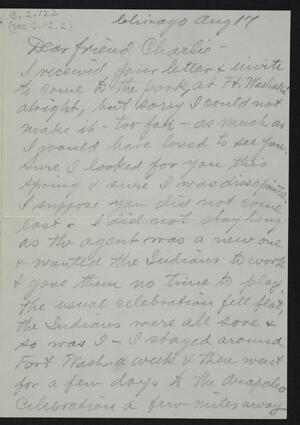 C.2.122
(see C.12.2)
Chicago Aug 17
Dear friend Charlie -
I received your letter & invite
to come to the park at Ft. Washakie
alright, but sorry I could not
make it - too far - as much as
I would have loved to see you.
Sure I looked for you this
spring & sure I was dissapointed.
I suppose you did not come
east. I did not stay long
as the agent was a new one
& wanted the Indians to work
& gave them no time to play.
The usual celebration fell flat,
the Indians were all sore &
so was I - I stayed around
Fort Wash. a week & then went
for a few days to the Arapaho
Celebration a few miles away